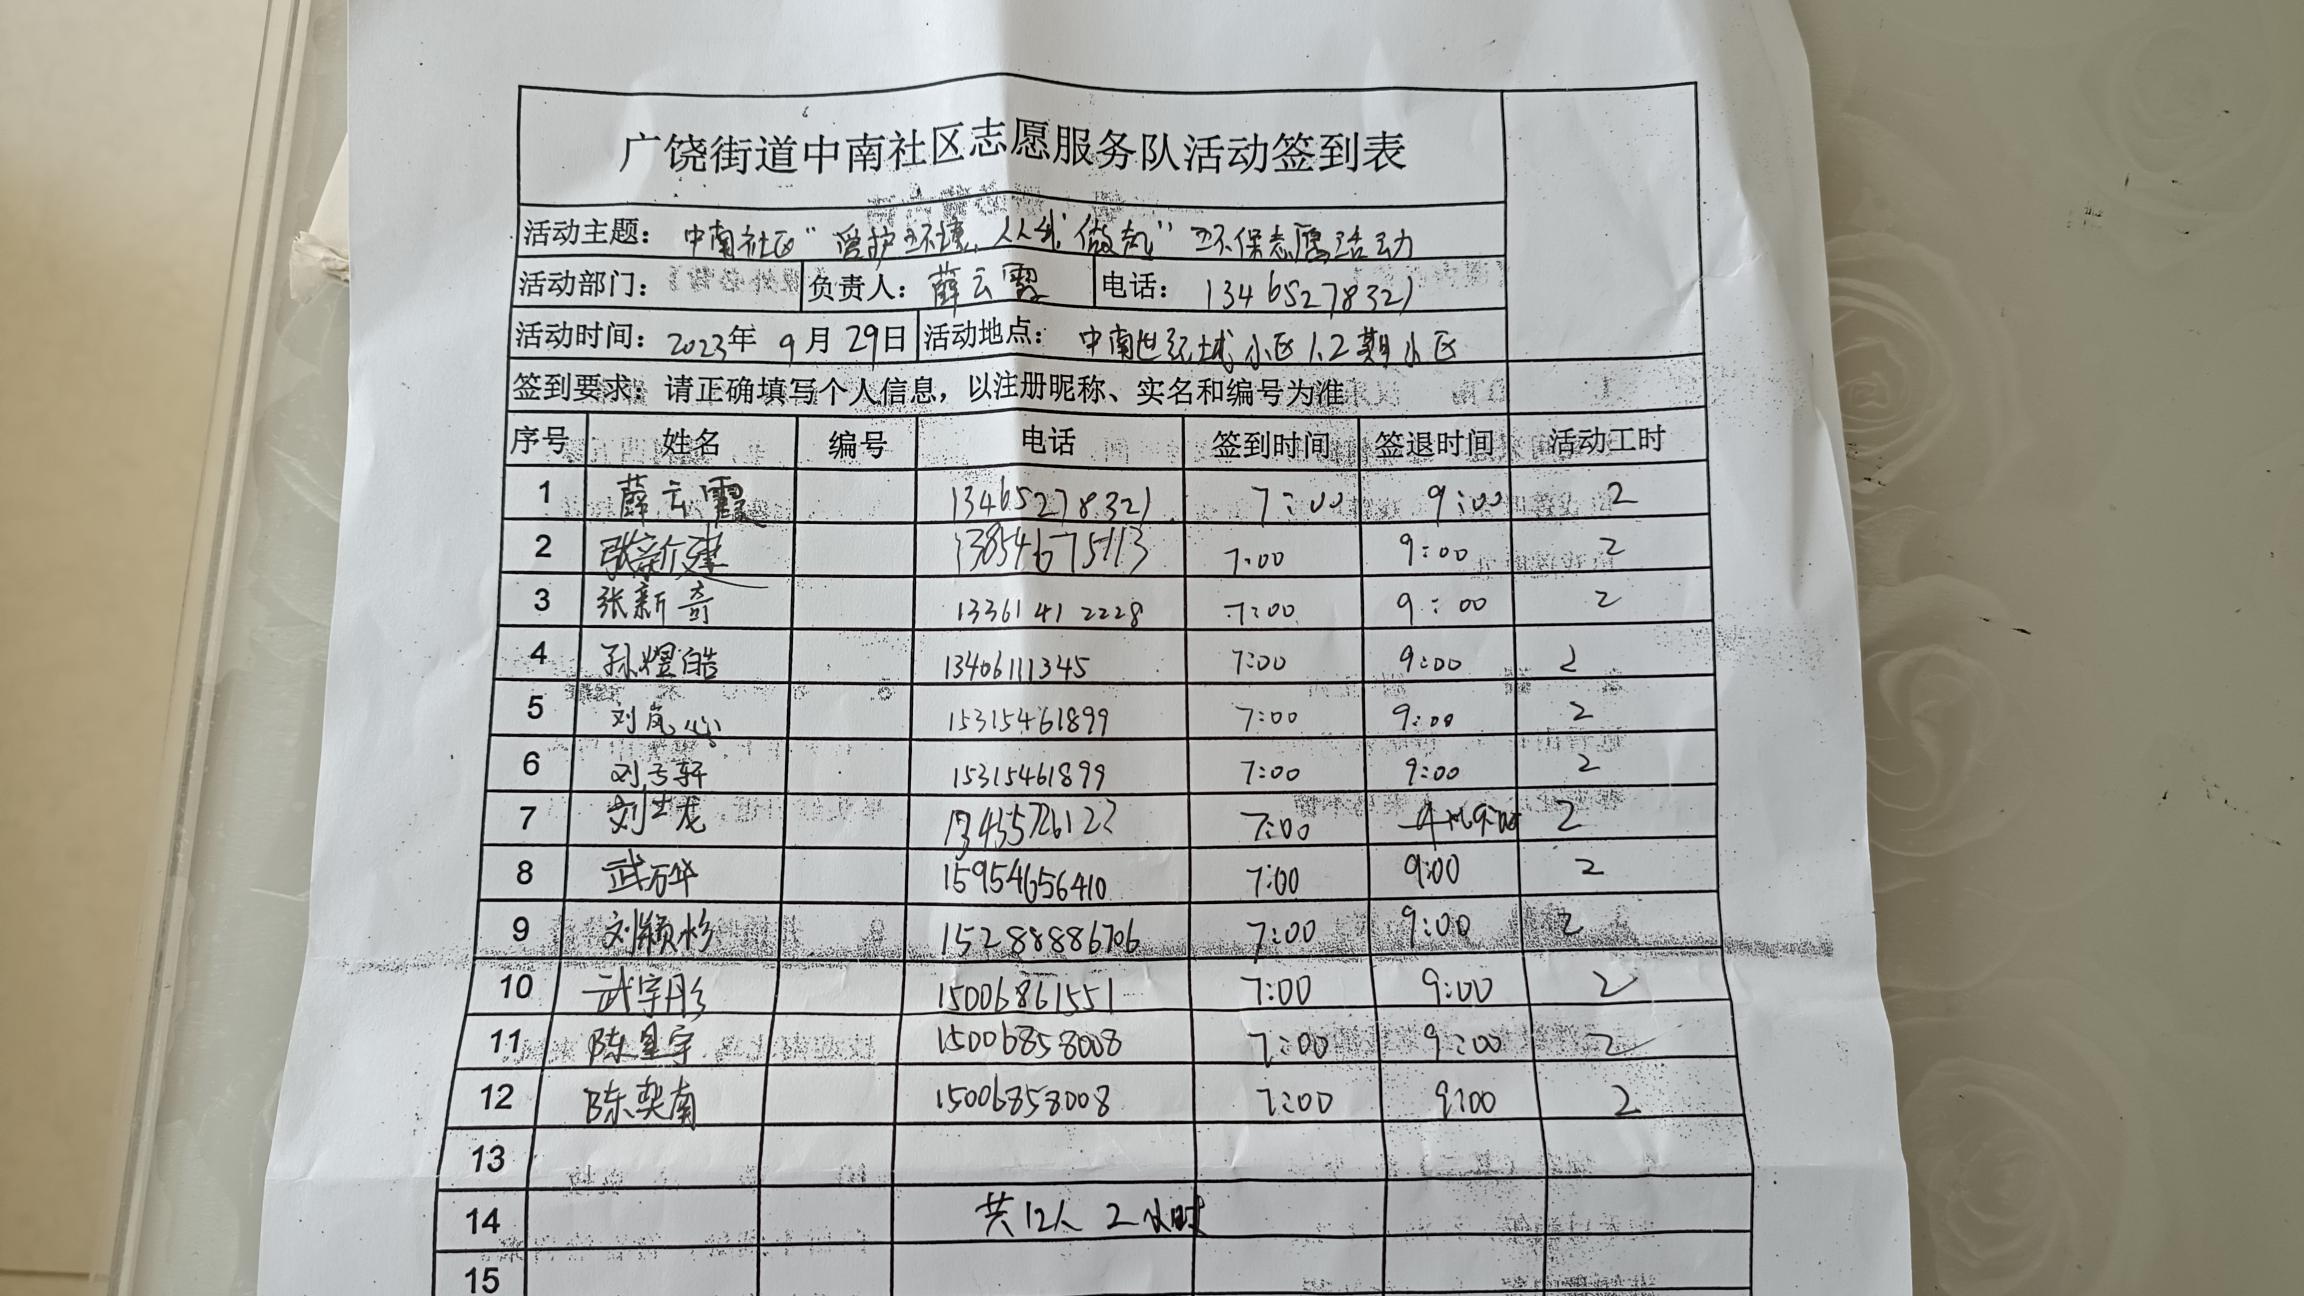 广饶街道中南社区志愿服务队活动签到表
活动主题： 中南社区“爱护环境，人人我做起”环保志愿活动
活动部门： 负责人： 薛云霞 电话： 13465278321
活动时间：2023年 9月29日 活动地点： 中南世纪城小区1.2期小区
签到要求：请正确填写个人信息，以注册昵称、实名和编号为准
序号 姓名 编号 电话 签到时间 签退时间 活动工时
1 薛云霞 13465278321 7:00 9:00 2
2 张新建 13854675113 7:00 9:00 2
3 张新奇 13361412228 7:00 9:00 2
4 孙煜皓 13406111345 7:00 9:00 2
5 刘岚心 15315461899 7:00 9:00 2
6 刘亏轩 15315461899 7:00 9:00 2
7 7:00 9:00 2
8 武万华 15954656410 7:00 9:00 2
9 刘颖杉 15288886706 7:00 9:00 2
10 武宇彤 15006861551 7:00 9:00 2
11 陈星宇 15006858008 7:00 9:00 2
12 陈奕南 15006858008 7:00 9:00 2
13
14 共12人 2小时
15